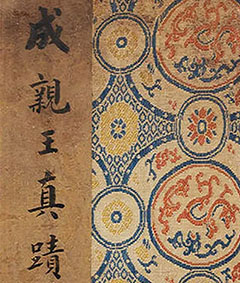 成親王真蹟